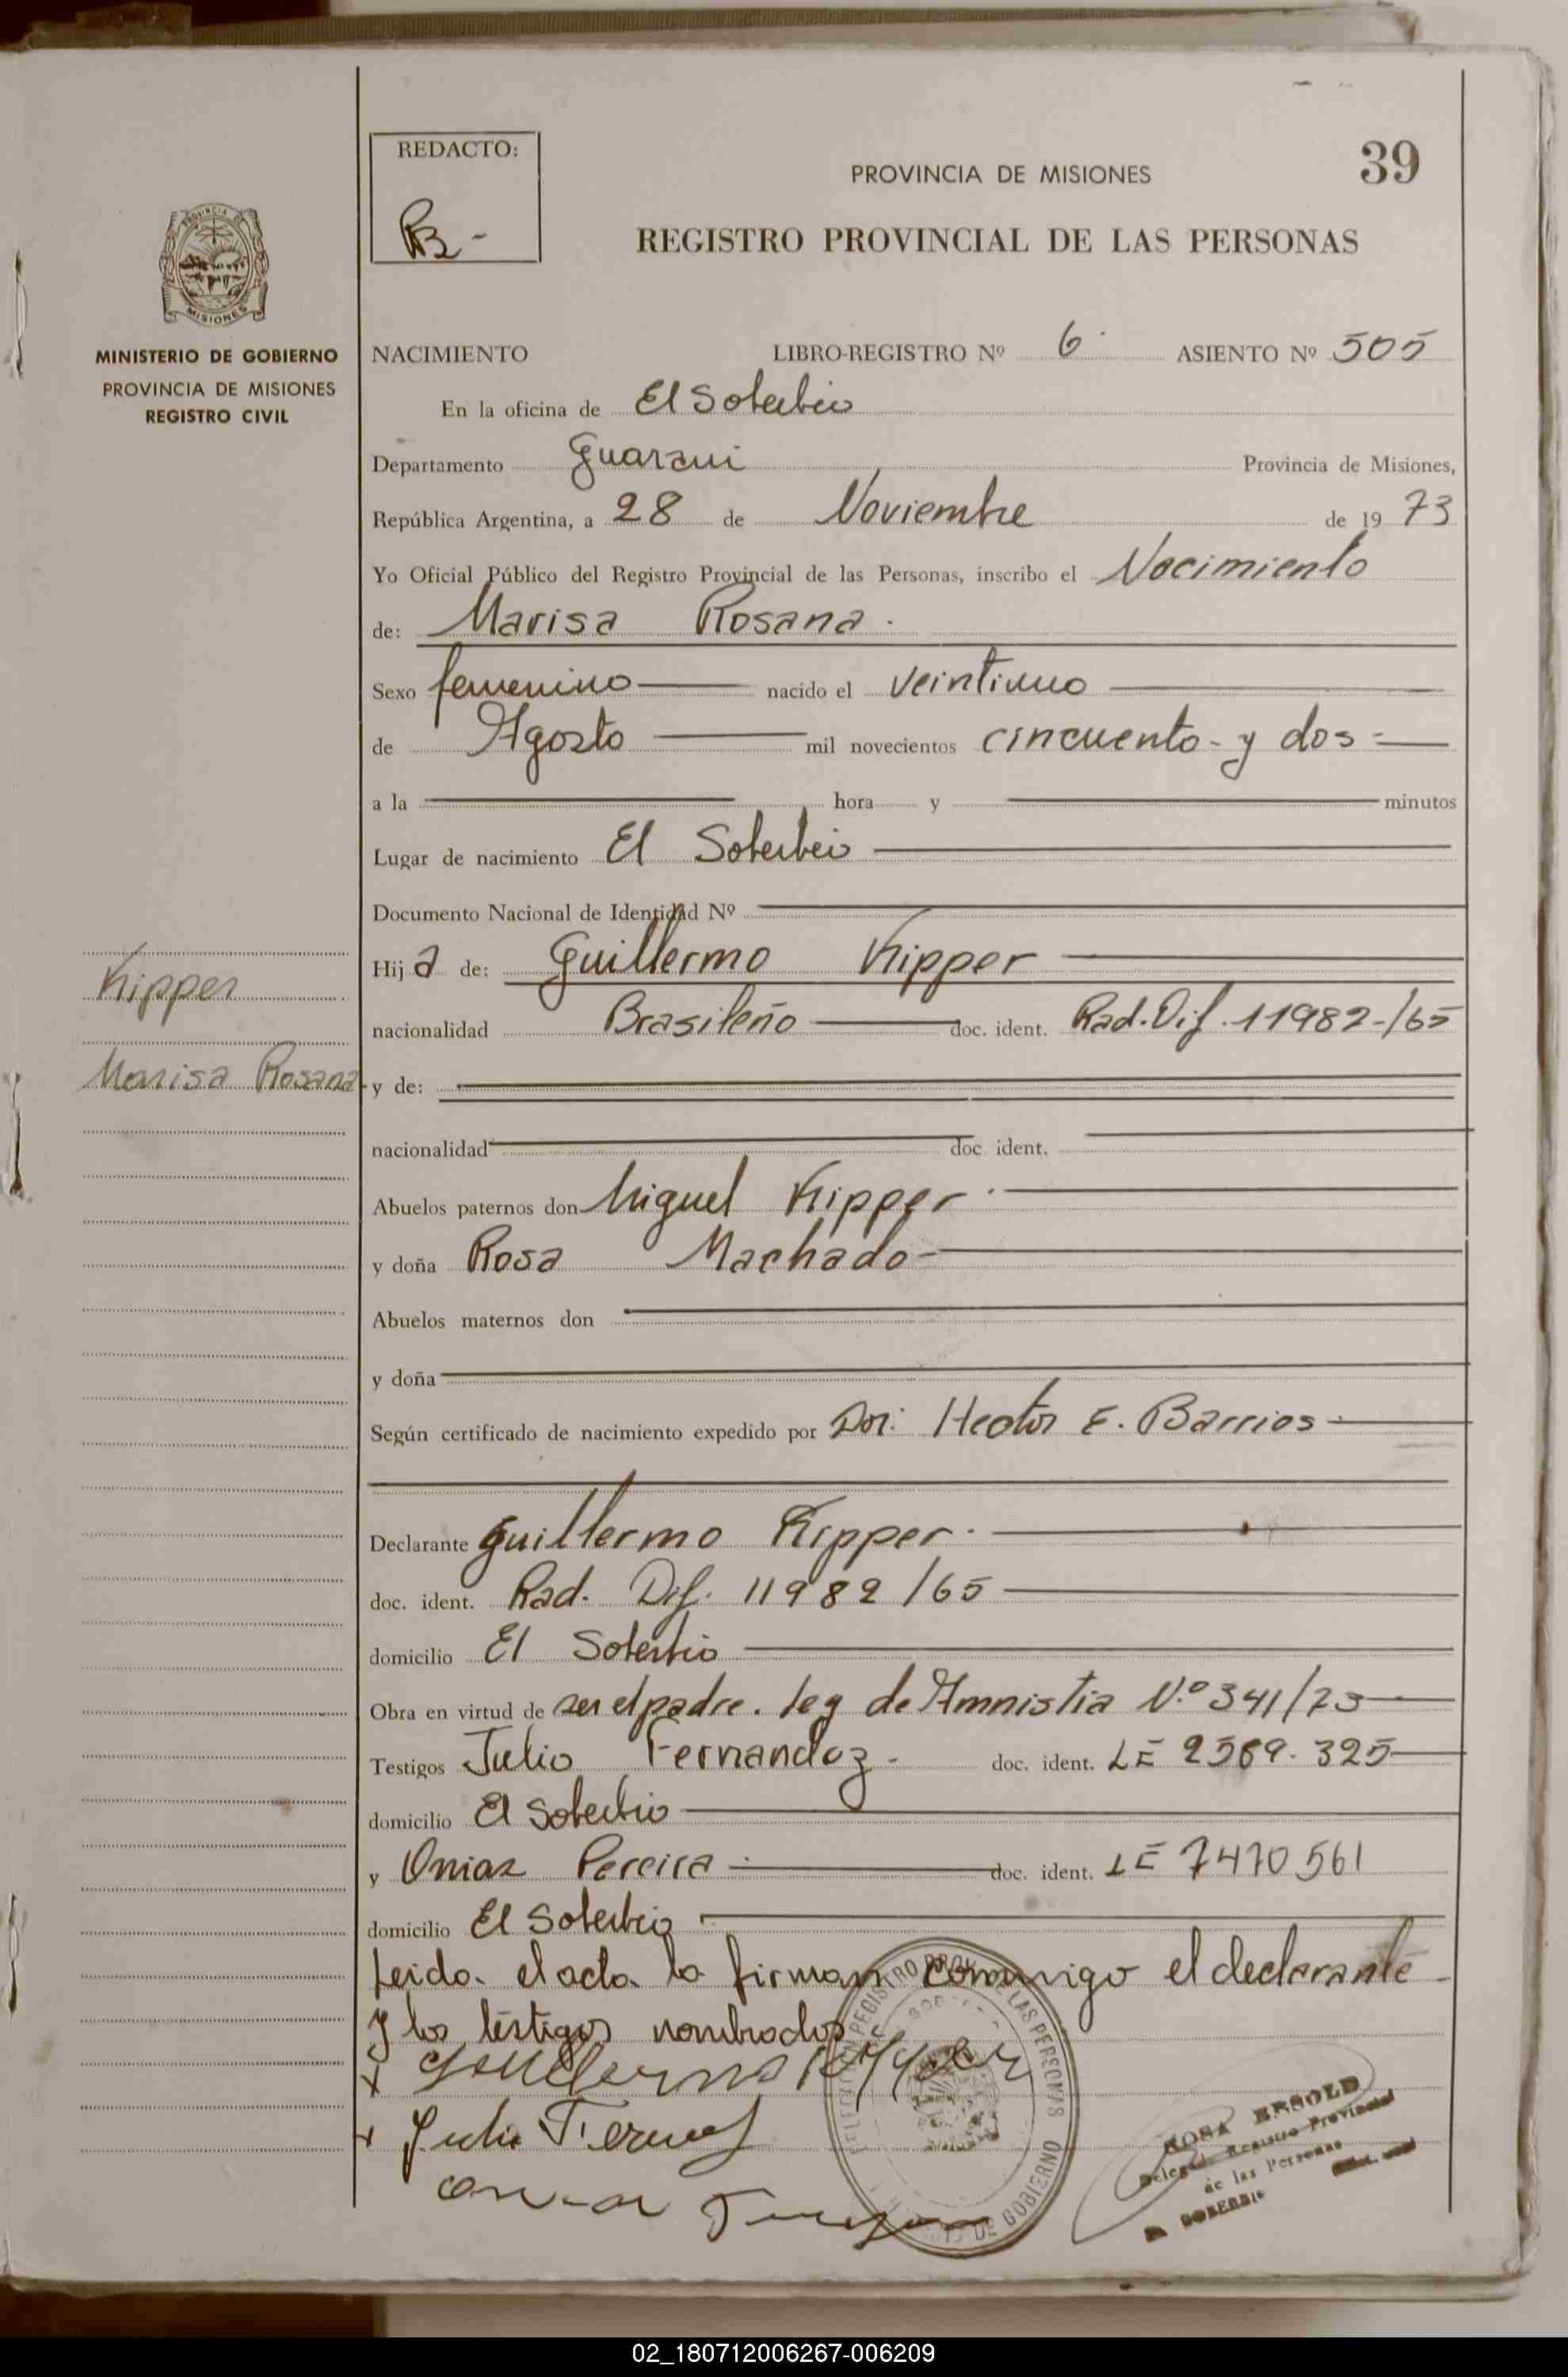 REDACTO:
39
PROVINCIA DE MISIONES
REGISTRO PROVINCIAL DE LAS PERSONAS
PROVINCIA DE
MISIONES
MINISTERIO DE GOBIERNO
PROVINCIA DE MISIONES
REGISTRO CIVIL
NACIMIENTO LIBRO-REGISTRO Nº 6 ASIENTO Nº 505
En la oficina de El Soberbio
Departamento Guarani Provincia de Misiones,
República Argentina, a 28 de Noviembre de 19 73
Yo Oficial Público del Registro Provincial de las Personas, inscribo el Nacimiento
de: Marisa Rosana.
Sexo femenino nacido el veintiuno
de Agosto mil novecientos cincuenta y dos
a la hora y minutos
Lugar de nacimiento El Soberbio
Documento Nacional de Identidad Nº
Hij a de: Guillermo Kipper
Kipper
nacionalidad Brasileño doc. ident. Rad. Dif. 11982-/65
Marisa Rosana
y de:
nacionalidad doc. ident.
Abuelos paternos don Miguel Kipper
y doña Rosa Machado
Abuelos maternos don
y doña
Según certificado de nacimiento expedido por Dor. Hector E. Barrios
Declarante Guillermo Kipper.
doc. ident. Rad. Dif. 11982/65
domicilio El Soberbio
Obra en virtud de ser el padre. ley de Amnistia N.º 341/73
Testigos Julio Fernandez doc. ident. LE 2569.325
domicilio El Soberbio
y Onias Pereira doc. ident. LE 7470561
domicilio El Soberbio
Leido el acta la firman conmigo el declarante
y los testigos nombrados
Guillermo Kipper
Julio Fernandez
REGISTRO PROV. DE LAS PERSONAS
DE GOBIERNO
ROSA ERSOLD
Delegada Registro Provincial
de las Personas
EL SOBERBIO
02_180712006267-006209